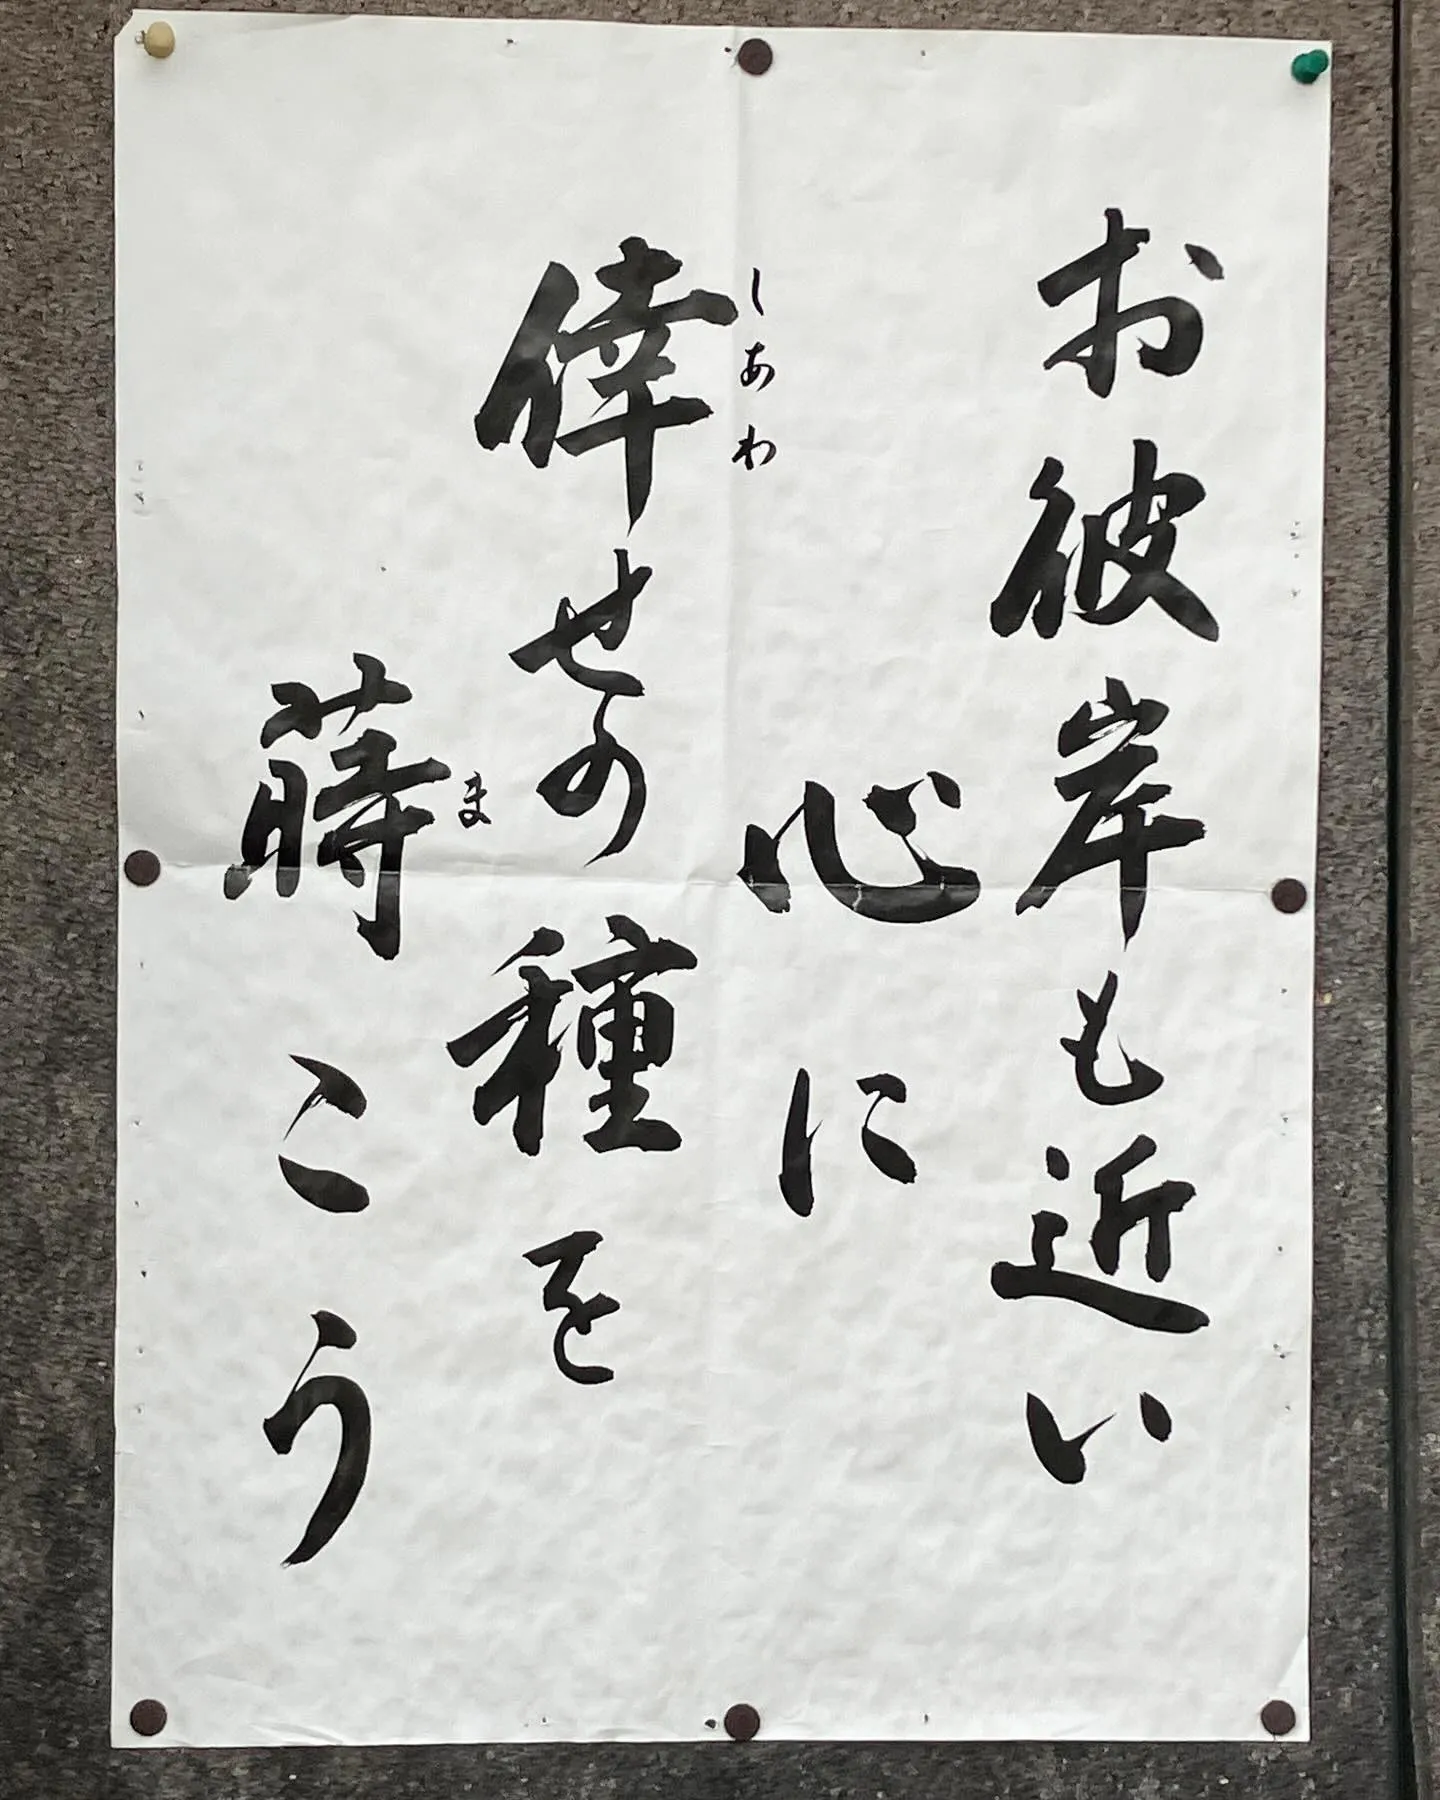 お彼岸も近い
心に
倖せの種を
しあわ
蒔こう
ま